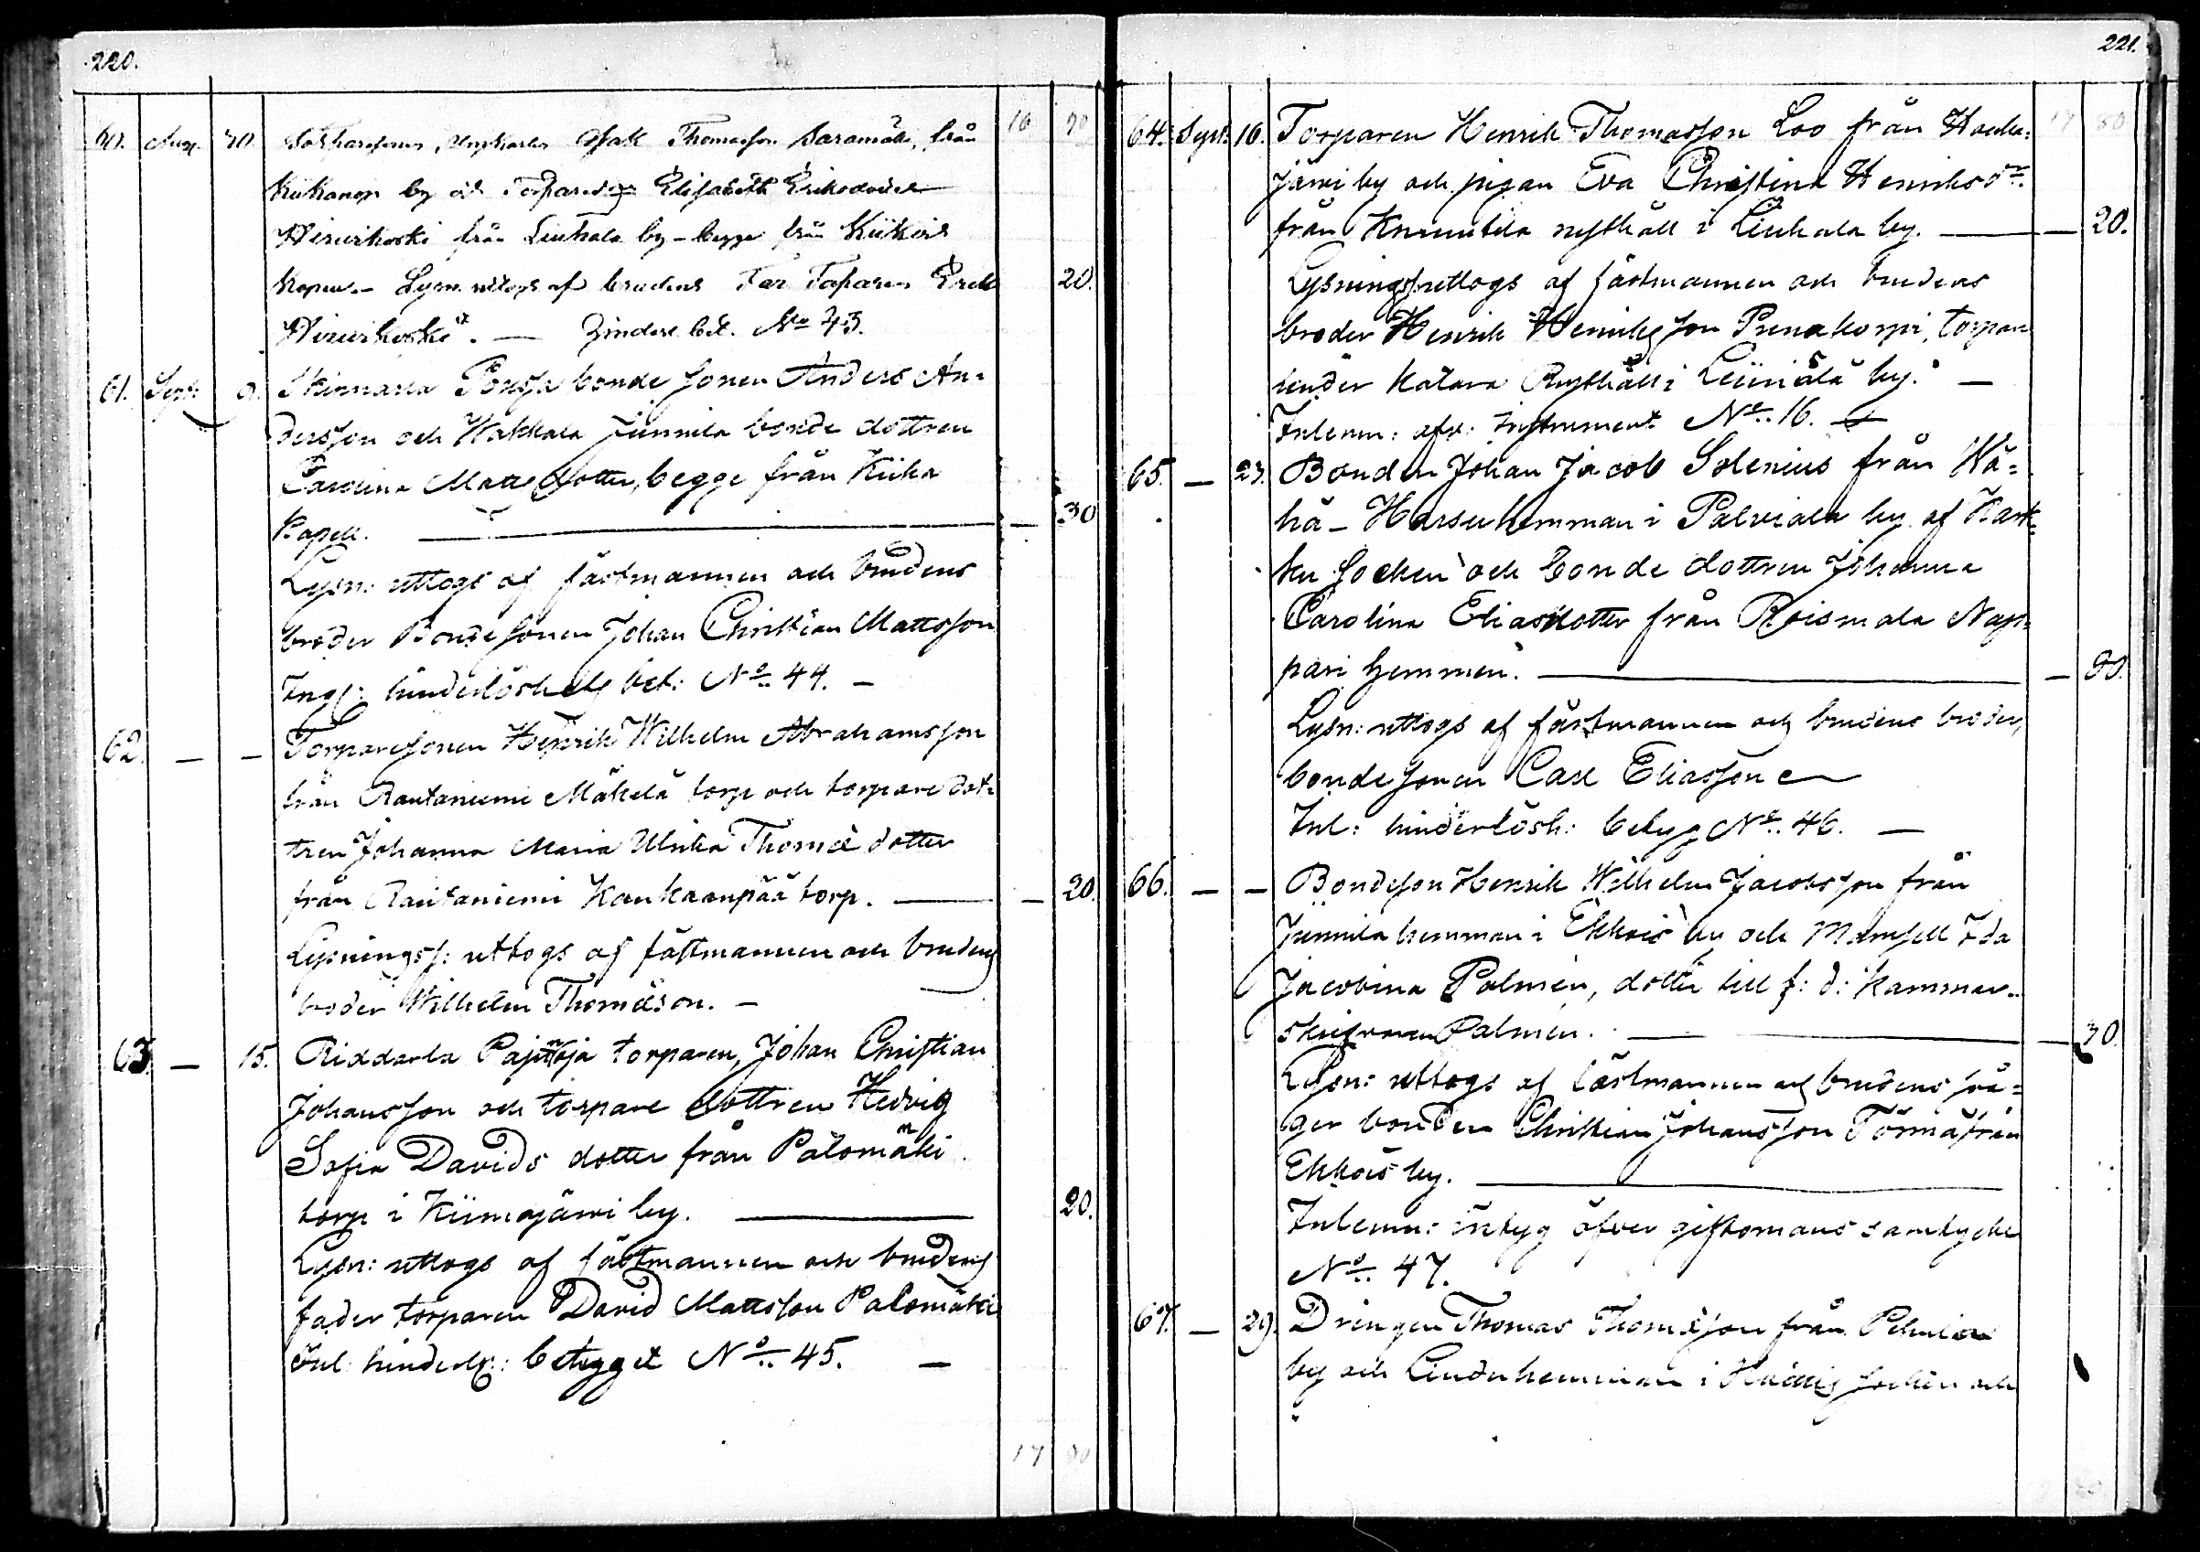 220.
16 90
60. Aug. 30. Isak Thomasson Saramäki, från
Kiikanoja by och Elisabeth Eriksdotter
Hirvikoski från Leukala by – begge från Kiikois
Kapell. – Lysn. uttogs af brudens Far Torparen Erik 20.
Hirvikoski. — Hinderl. bet. No 43.
61. Sept. 9. Skinnarla Pousa bonde sonen Anders An-
dersson och Wakkala Junnila bonde dottren
Carolina Matts dotter, begge från Kiika
Kapell. — 30
Lysn: uttogs af fästmannen och brudens
broder Bondesonen Johan Christian Mattsson
Ingf: hinderlöshets bet: No 44. –
62. — — Torparesonen Henrik Wilhelm Abrahamsson
från Rautaniemi Mäkelä torp och torpare dot-
tren Johanna Maria Ulrika Thomæ dotter
från Rautaniemi Kankaanpää torp. — — 20.
Lysningss: uttogs af fästmannen och brudens
broder Wilhelm Thomæson. –
63. — 15. Riddarla Pajunoja torparen, Johan Christian
Johansson och torpare dottren Hedvig
Sofia Davids dotter från Palomäki
torp i Kiimajärvi by. — 20.
Lysn: uttogs af fästmannen och brudens
fader torparen David Mattsson Palomäki
Inl. hinderl: betyget No 45. —
17 80
221.
17 80
64. Sept. 16. Torparen Henrik Thomasson Loo från Houhi-
järvi by och pigan Eva Christina Henriksdr.
från Knuutila rusthåll i Liuhala by. — — 20.
Lysningss. uttogs af fästmannen och brudens
broder Henrik Henriksson Punakorpi, torpare
under Katara Rusthåll i Leiniälä by. —
Inlemn: afv: Instrument No 16. —
65. — 23. Bonden Johan Jacob Solenius från Wä-
hä-Harsu hemman i Palviala by af Kark-
ku socken och bonde dottren Johanna
Carolina Eliasdotter från Roismala Nap-
pari hemman. — — 90.
Lysn: uttogs af fästmannen och brudens broder,
bondesonen Carl Eliasson
Inl: hinderlösh: betyg No 46. —
66. — — Bondeson Henrik Wilhelm Jacobsson från
Junnila hemman i Ekkois by och Mamsell Ida
Jacobina Palmén, dotter till f: d: Kammar-
skrifvaren Palmén. — — 30.
Lysn: uttogs af fästmannen och brudens svå-
ger bonden Christian Johansson Törmä från
Ekkois by. —
Inlemn: intyg öfver giftomans samtycke
No 47.
67. — 29. Drängen Thomas Thomæson från
by och hemman i socken och